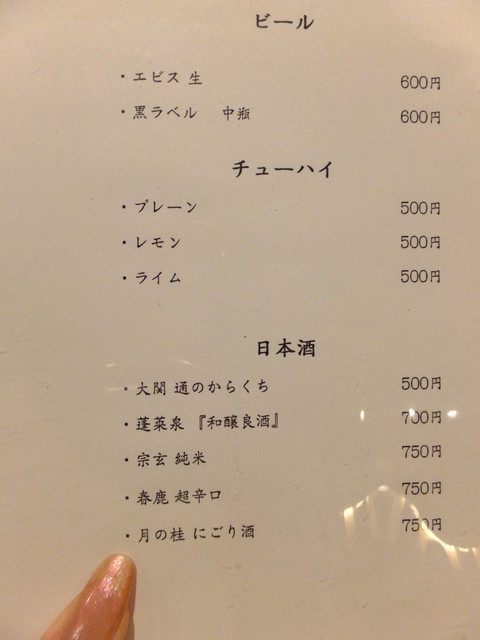 ビール
・エビス 生 600円
・黒ラベル 中瓶 600円
チューハイ
・プレーン 500円
・レモン 500円
・ライム 500円
日本酒
・大関 通のからくち 500円
・蓬莱泉 『和醸良酒』 700円
・宗玄 純米 750円
・春鹿 超辛口 750円
・月の桂 にごり酒 750円